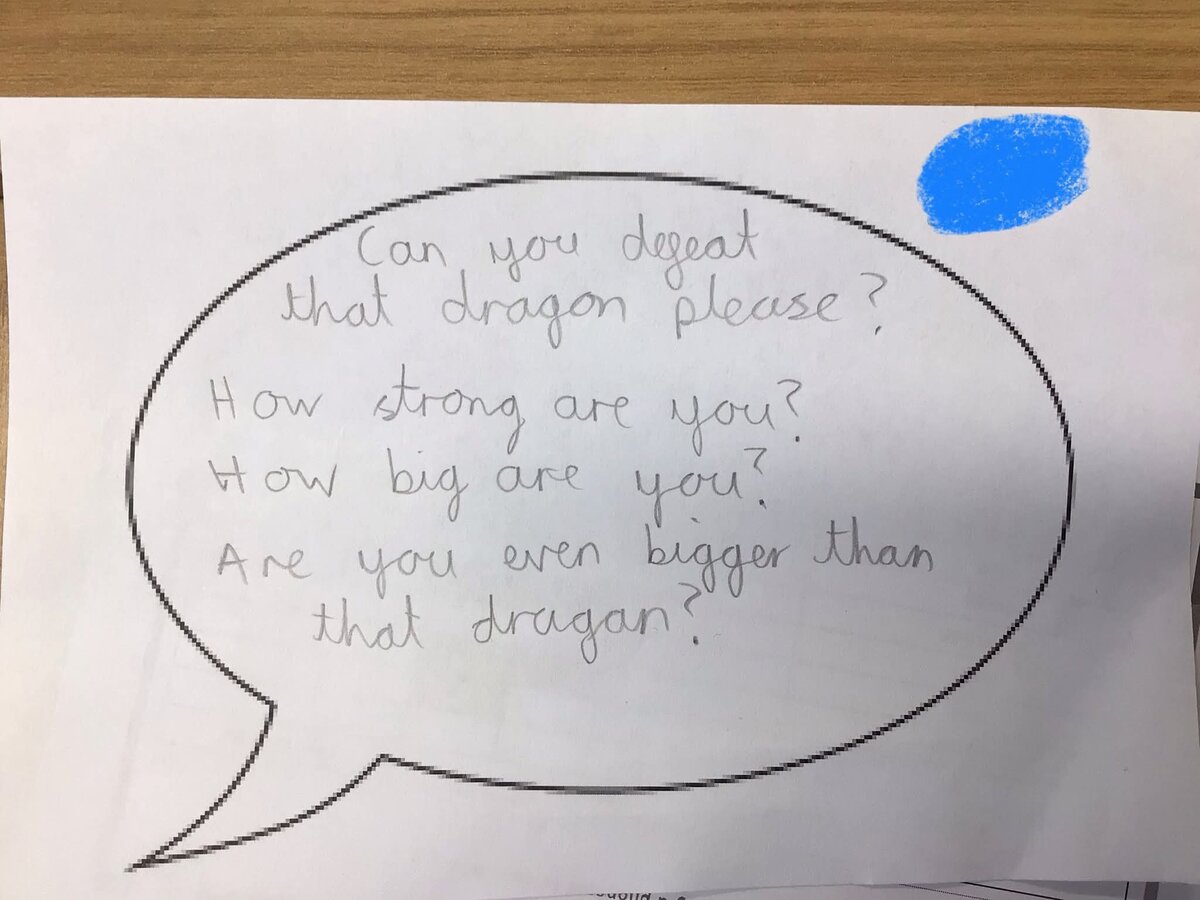 Can you defeat
that dragon please?
How strong are you?
How big are you?
Are you even bigger than
that dragan?